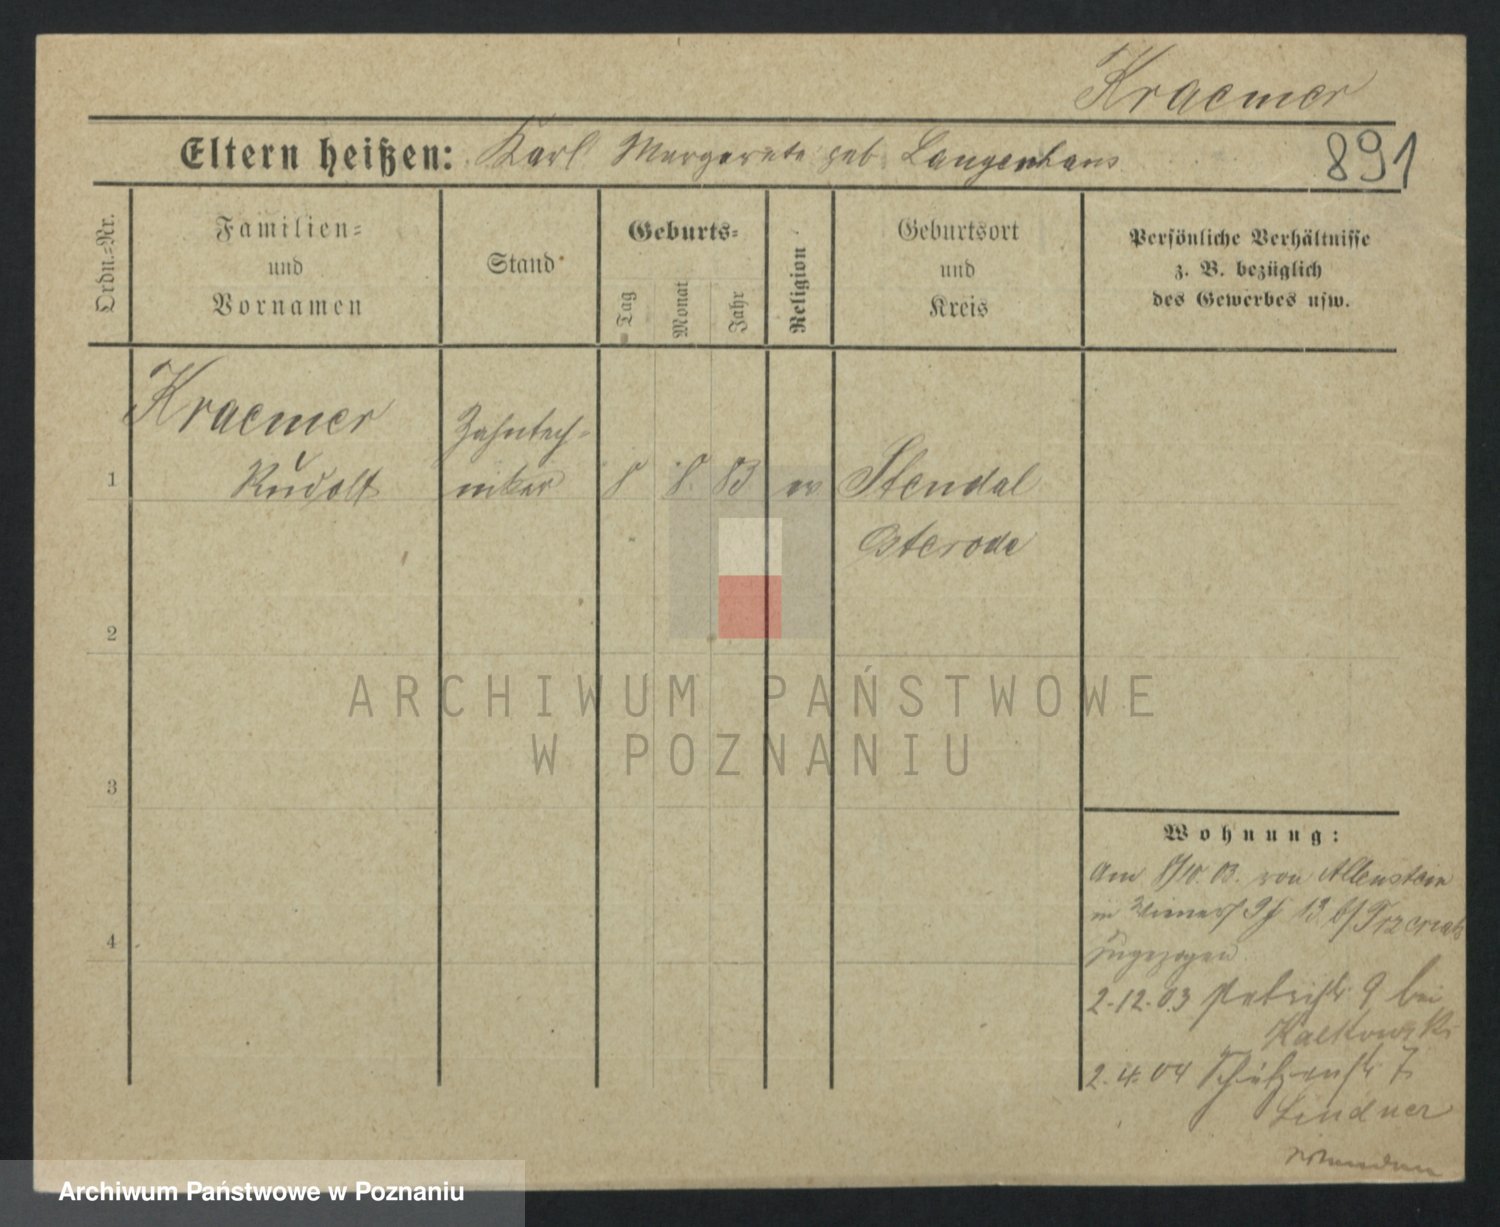 Kraemer
Eltern heißen: Karl Margarete geb. Langenhans
891
Ordn.-Nr.
Familien-
und
Vornamen
Stand
Geburts-
Tag
Monat
Jahr
Religion
Geburtsort
und
Kreis
Persönliche Verhältnisse
z. B. bezüglich
des Gewerbes usw.
Kraemer
Zahntech-
1 Rudolf niker 8 8. 83 ev Stendal
Osterode
2
ARCHIWUM PAŃSTWOWE
W POZNANIU
3
Wohnung:
Am 8/10. 03. von Allenstein
in 13 b/
4
zugezogen
2.12.03 Petristr. 9 bei
Kalkowski
2.4.04 Schützenstr 7
Lindner
Archiwum Państwowe w Poznaniu